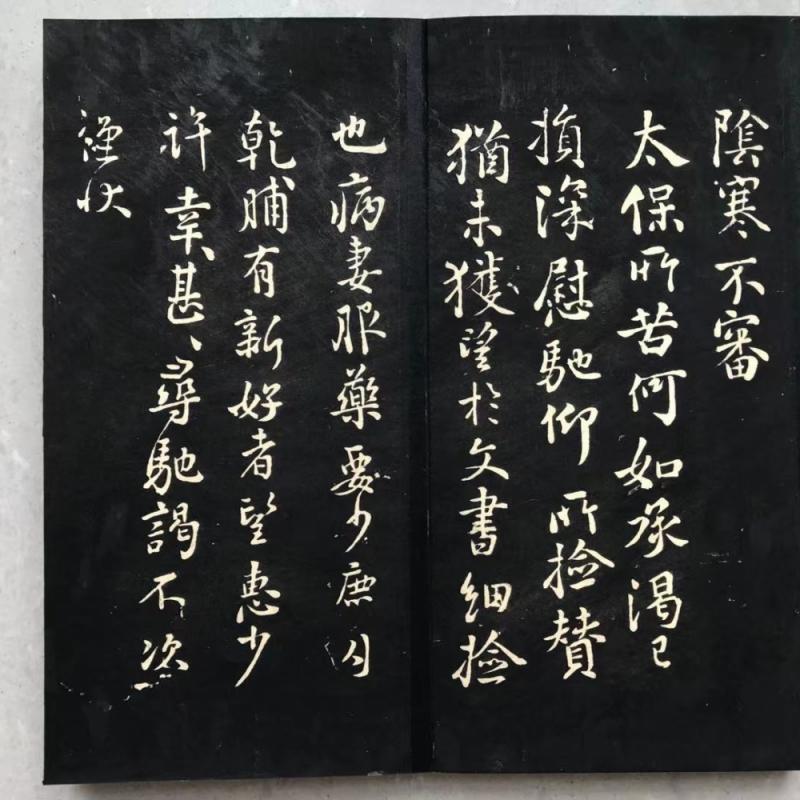 陰寒不審
太保所苦何如承渴已
損深慰馳仰所捡賛
猶未獲望於文書細捡
也病妻服藥要少鹿肉
乾脯有新好者望惠少
許幸甚〻尋馳謁不次
謹狀